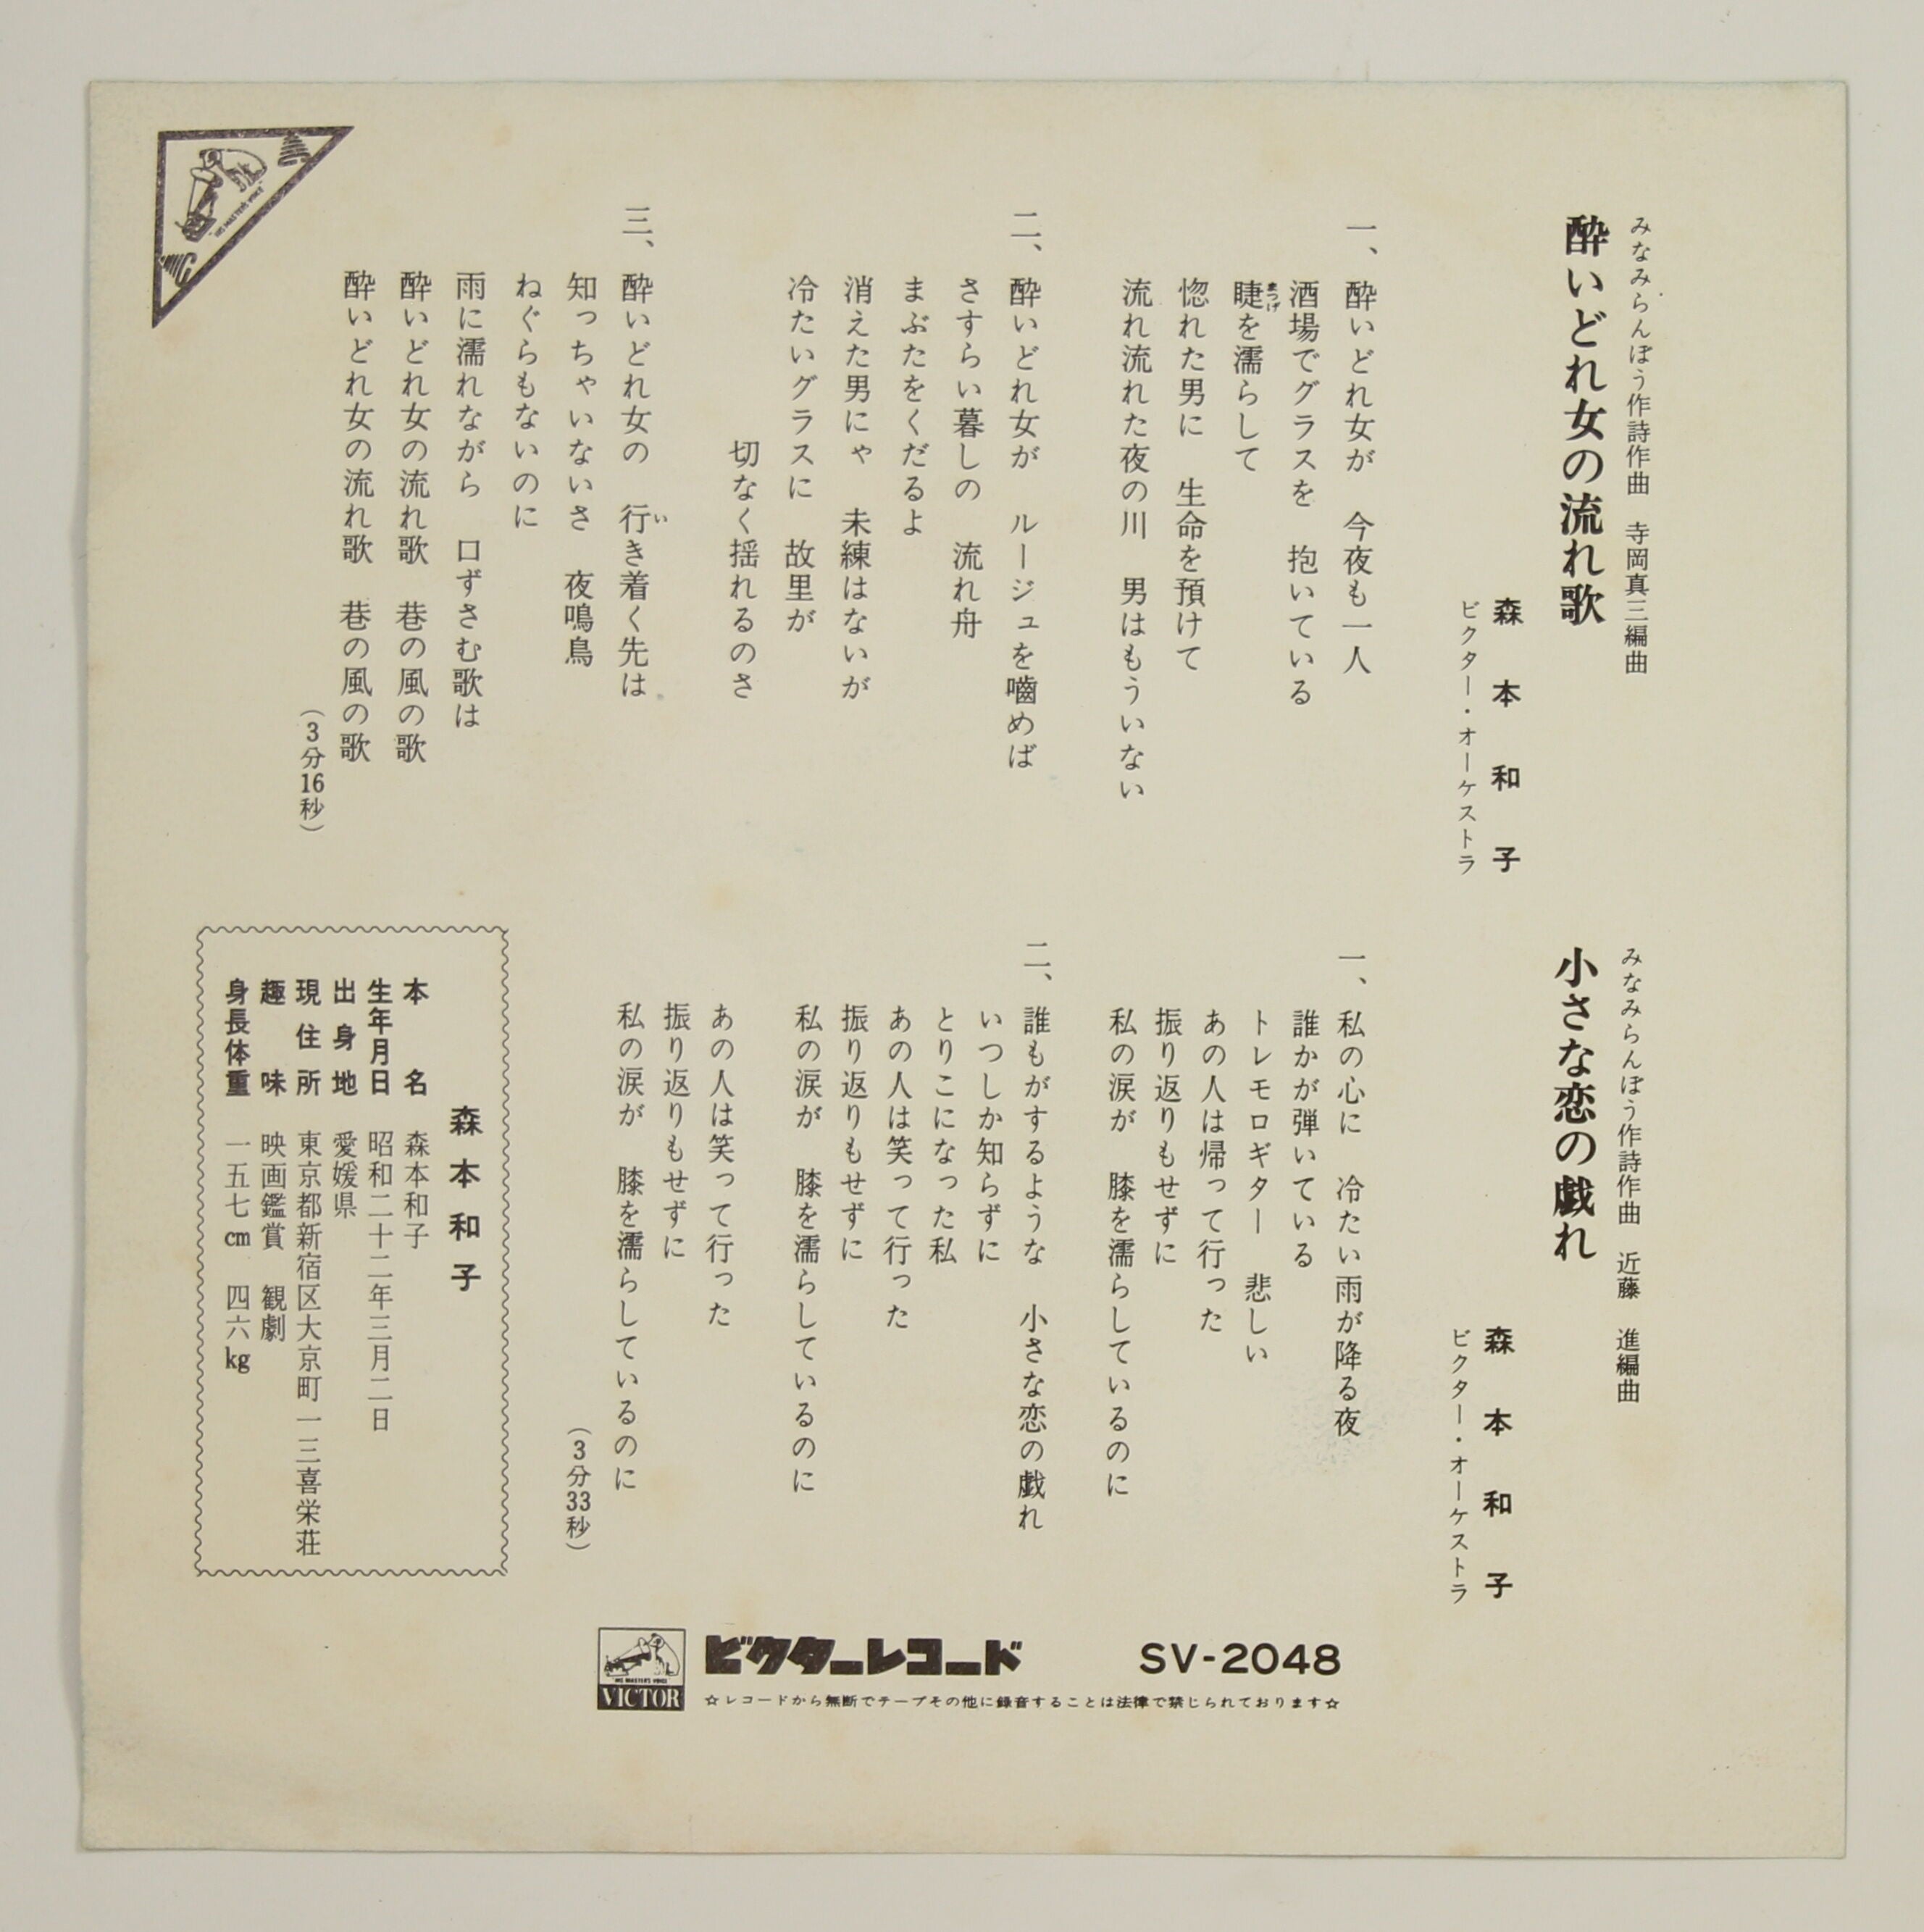 みなみらんぼう作詩作曲　寺岡真三編曲
酔いどれ女の流れ歌
森本和子
ビクター・オーケストラ
一、酔いどれ女が　今夜も一人
酒場でグラスを　抱いている
睫を濡らして
まつげ
惚れた男に　生命を預けて
流れ流れた夜の川　男はもういない
二、酔いどれ女が　ルージュを嚙めば
さすらい暮しの　流れ舟
まぶたをくだるよ
消えた男にゃ　未練はないが
冷たいグラスに　故里が
切なく揺れるのさ
三、酔いどれ女の　行き着く先は
い
知っちゃいないさ　夜鳴鳥
ねぐらもないのに
雨に濡れながら　口ずさむ歌は
酔いどれ女の流れ歌　巷の風の歌
酔いどれ女の流れ歌　巷の風の歌
（3分16秒）
みなみらんぼう作詩作曲　近藤　進編曲
小さな恋の戯れ
森本和子
ビクター・オーケストラ
一、私の心に　冷たい雨が降る夜
誰かが弾いている
トレモロギター　悲しい
あの人は帰って行った
振り返りもせずに
私の涙が　膝を濡らしているのに
二、誰もがするような　小さな恋の戯れ
いつしか知らずに
とりこになった私
あの人は笑って行った
振り返りもせずに
私の涙が　膝を濡らしているのに
あの人は笑って行った
振り返りもせずに
私の涙が　膝を濡らしているのに
（3分33秒）
森本和子
本名　森本和子
生年月日　昭和二十二年三月二日
出身地　愛媛県
現住所　東京都新宿区大京町一三喜栄荘
趣味　映画鑑賞　観劇
身長体重　一五七cm　四六kg
HIS MASTER'S VOICE
VICTOR
ビクターレコード　SV-2048
☆レコードから無断でテープその他に録音することは法律で禁じられております☆